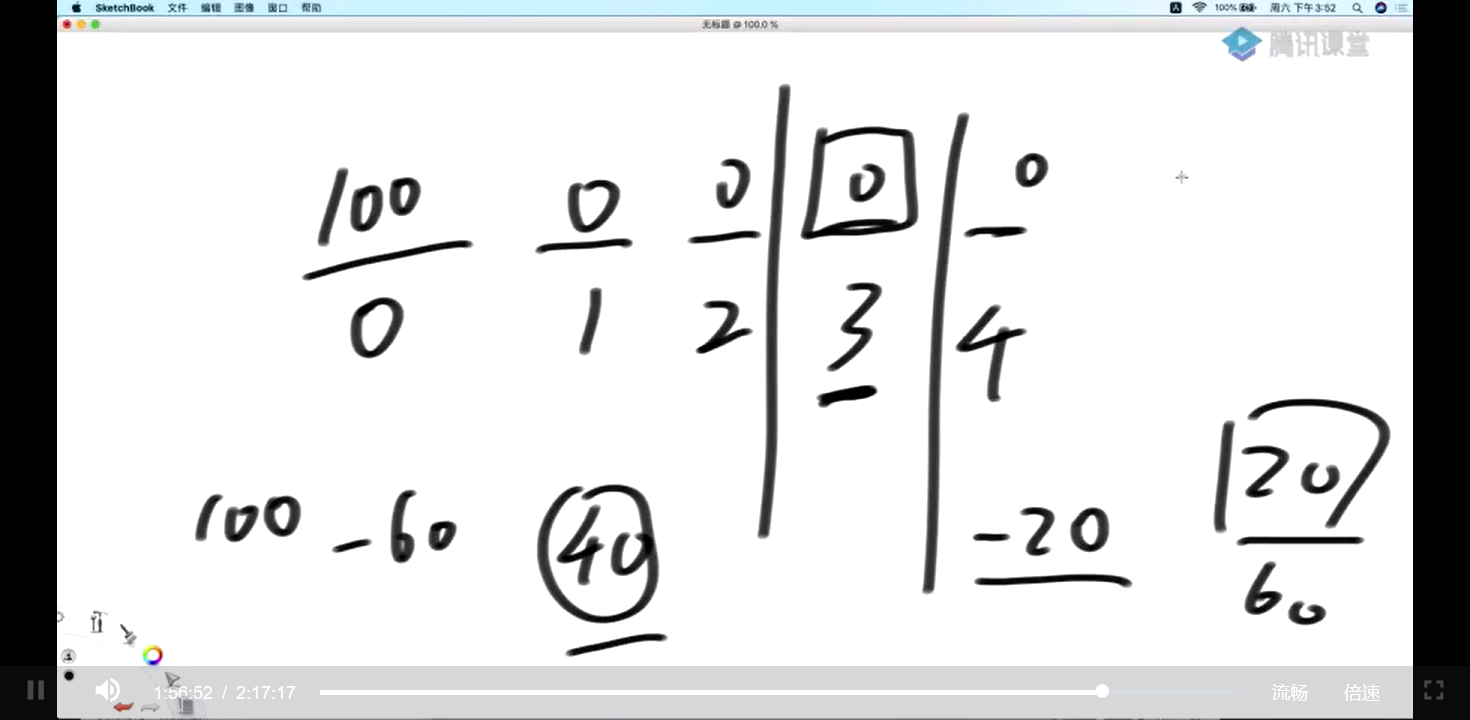 SketchBook 文件 编辑 图像 窗口 帮助 100% 周六 下午3:52
无标题 @ 100.0 %
腾讯课堂
100 0 0 0 0
0 1 2 3 4
100 -60 40 -20 120
60
1:56:52 / 2:17:17 流畅 倍速